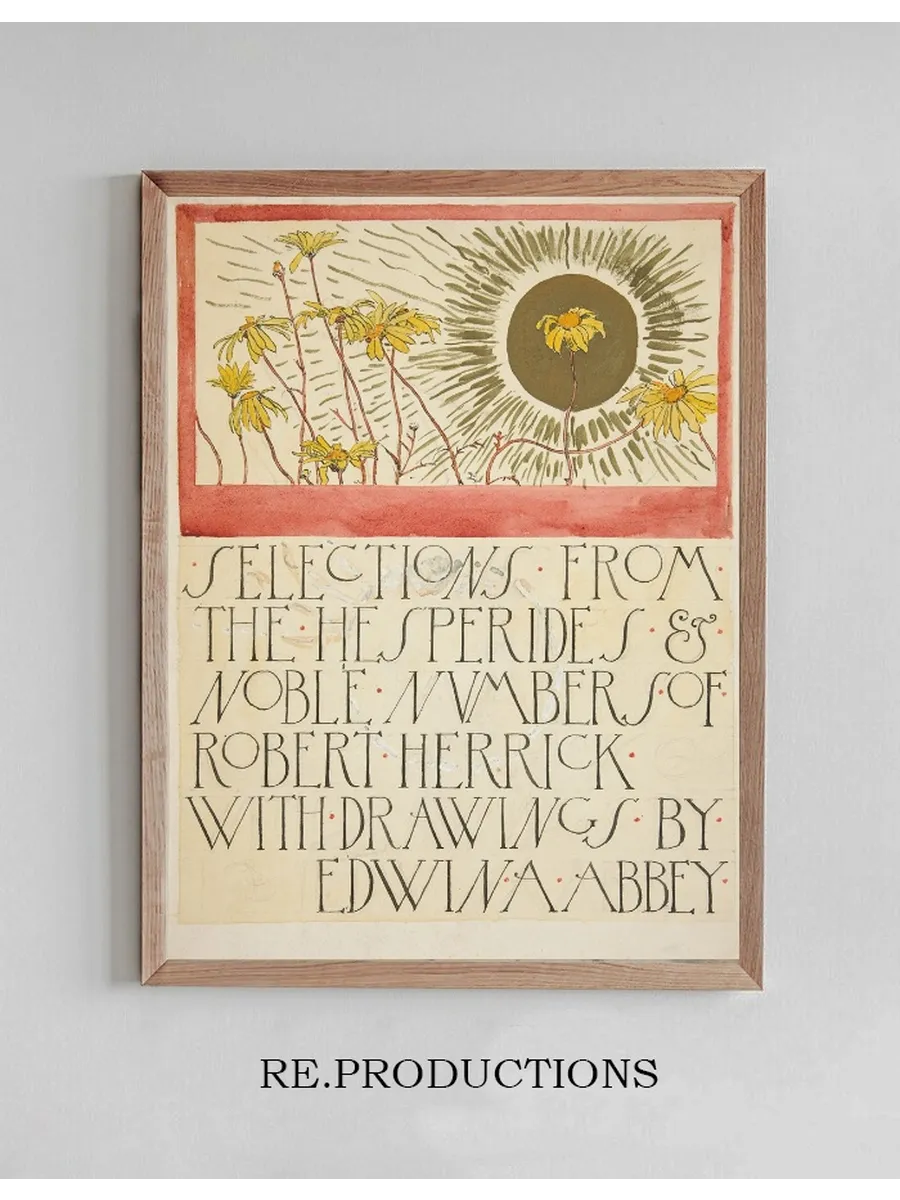 · SELECTIONS · FROM ·
THE · HESPERIDES · & ·
NOBLE · NVMBERS · OF ·
ROBERT · HERRICK ·
WITH · DRAWINGS · BY ·
EDWIN · A · ABBEY ·
RE.PRODUCTIONS